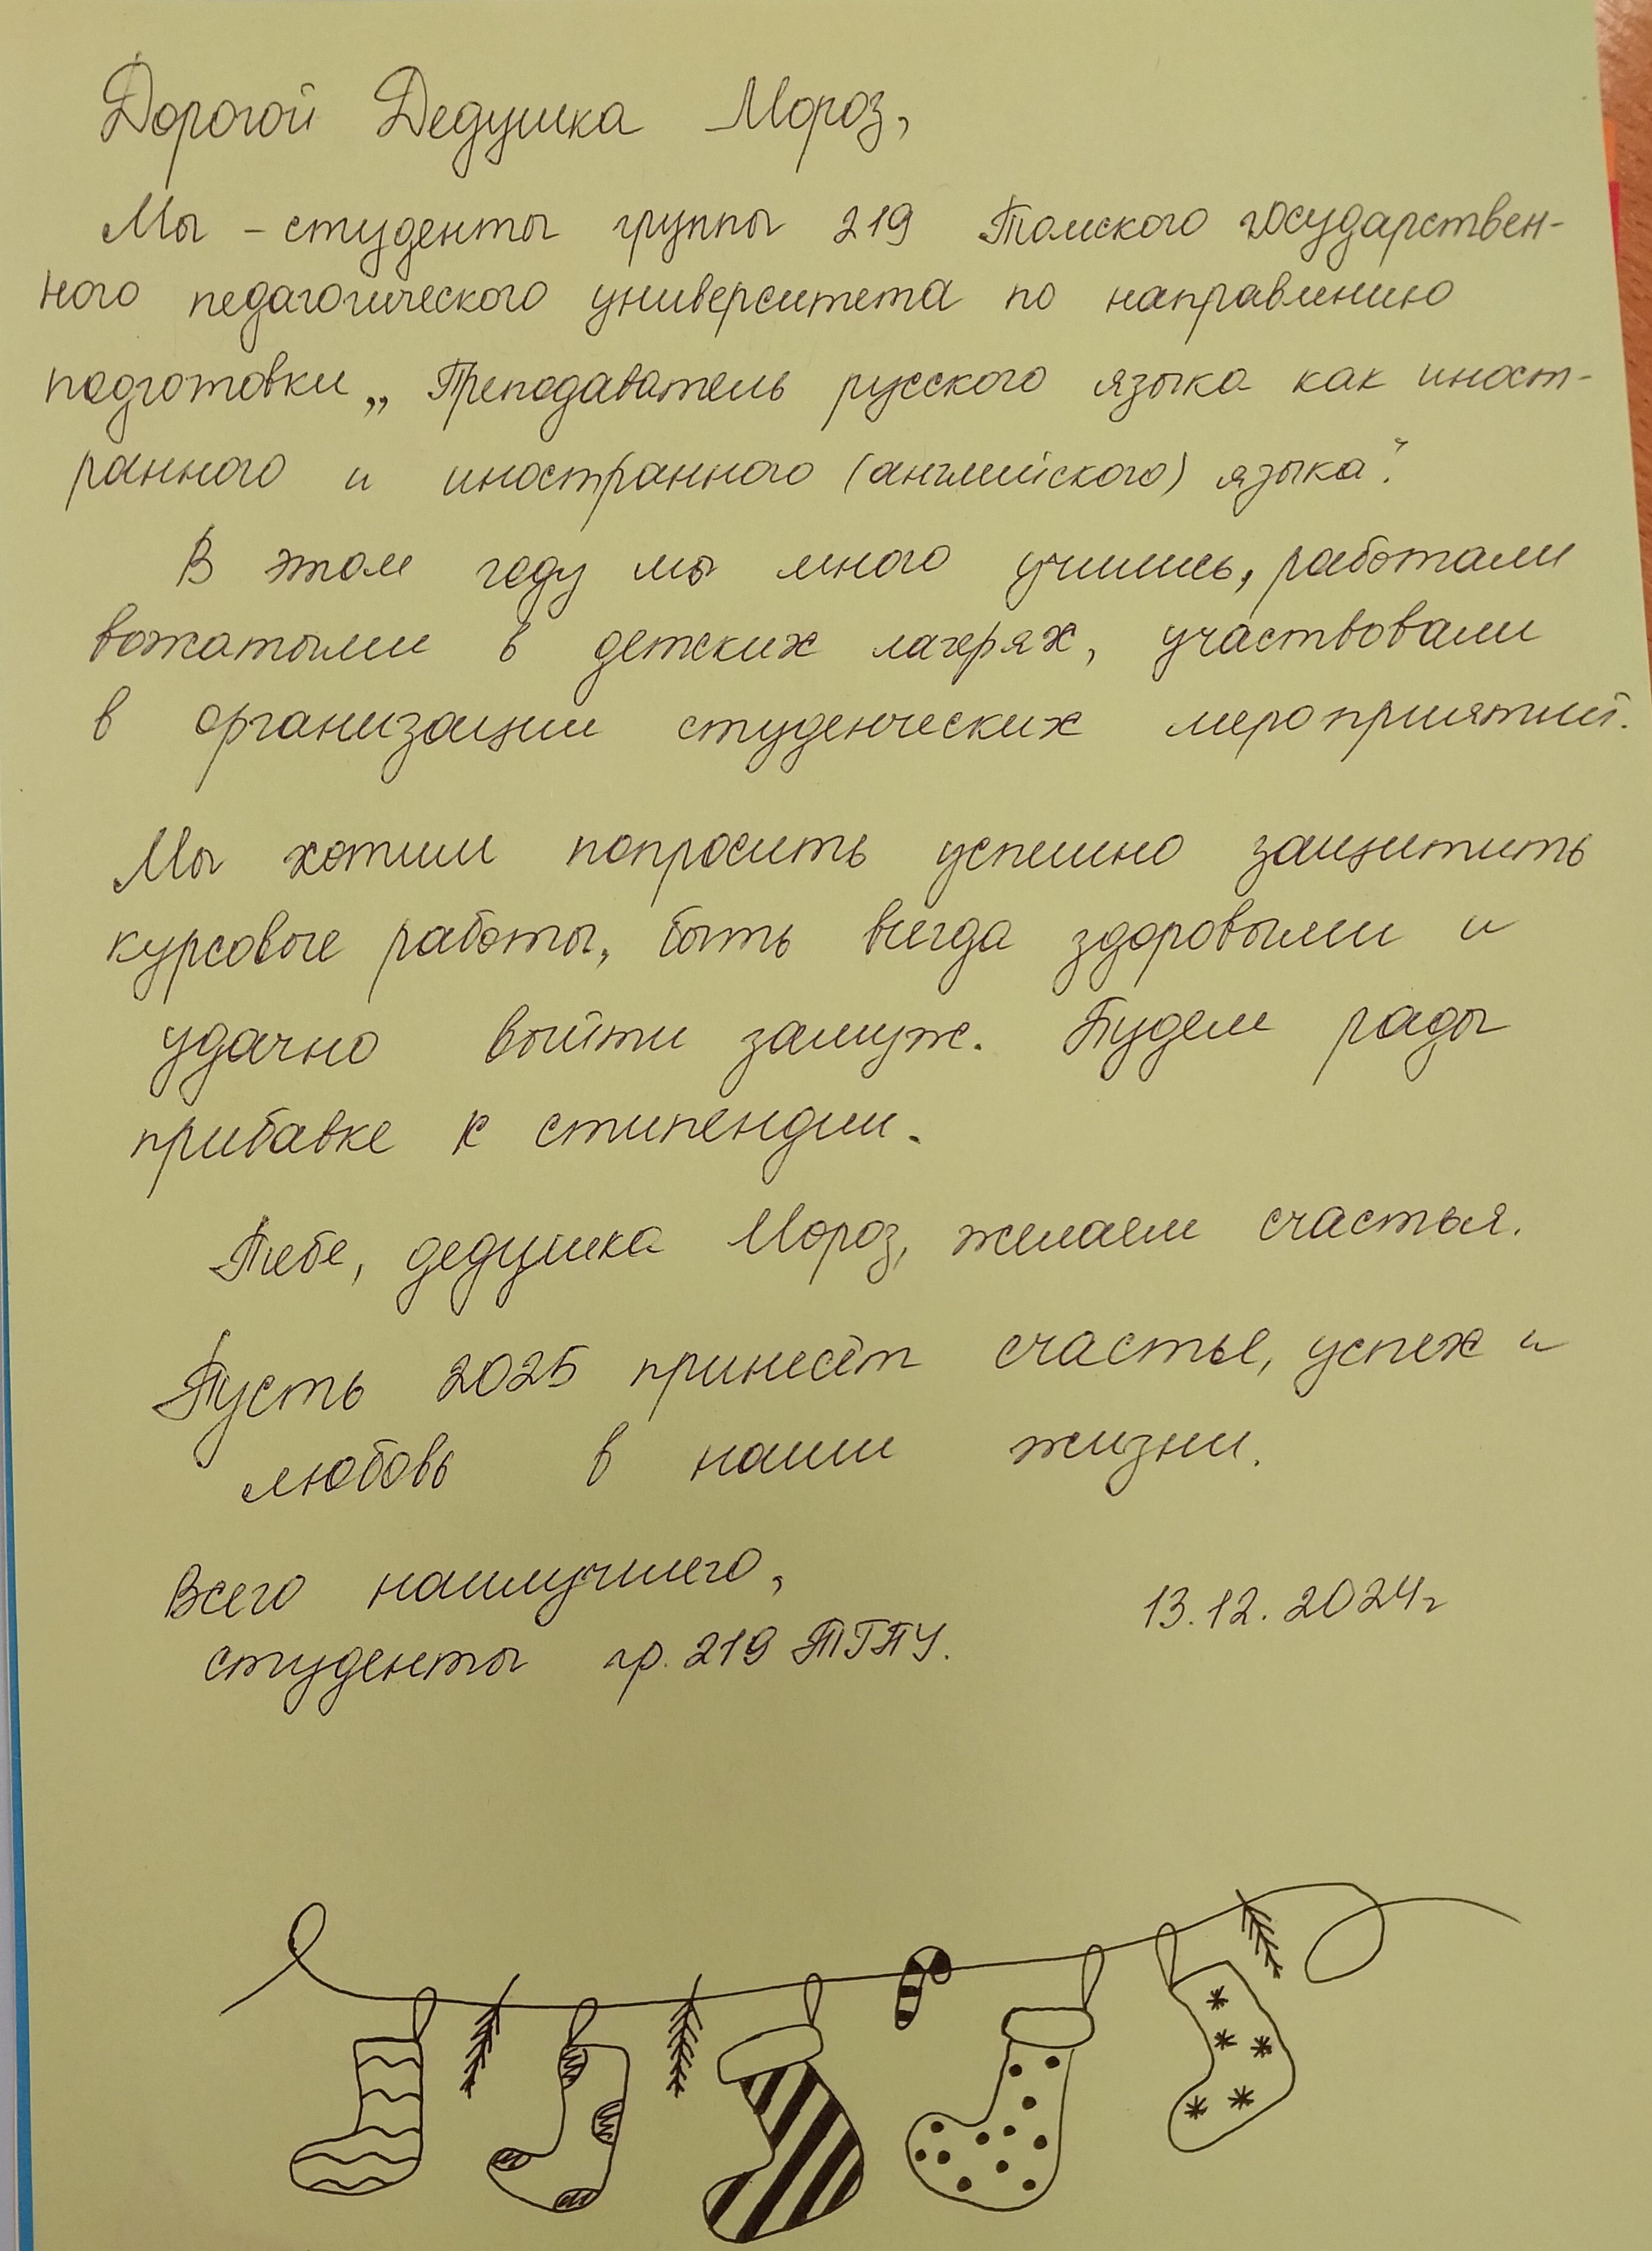 Дорогой Дедушка Мороз,
Мы – студенты группы 219 Томского государствен-
ного педагогического университета по направлению
подготовки „Преподаватель русского языка как иност-
ранного и иностранного (английского) языка".
В этом году мы много учились, работали
вожатыми в детских лагерях, участвовали
в организации студенческих мероприятий.
Мы хотим попросить успешно защитить
курсовые работы, быть всегда здоровыми и
удачно выйти замуж. Будем рады
прибавке к стипендии.
Тебе, дедушка Мороз, желаем счастья.
Пусть 2025 принесёт счастье, успех и
любовь в наши жизни.
Всего наилучшего,
13.12.2024г
студенты гр. 219 ТГПУ.